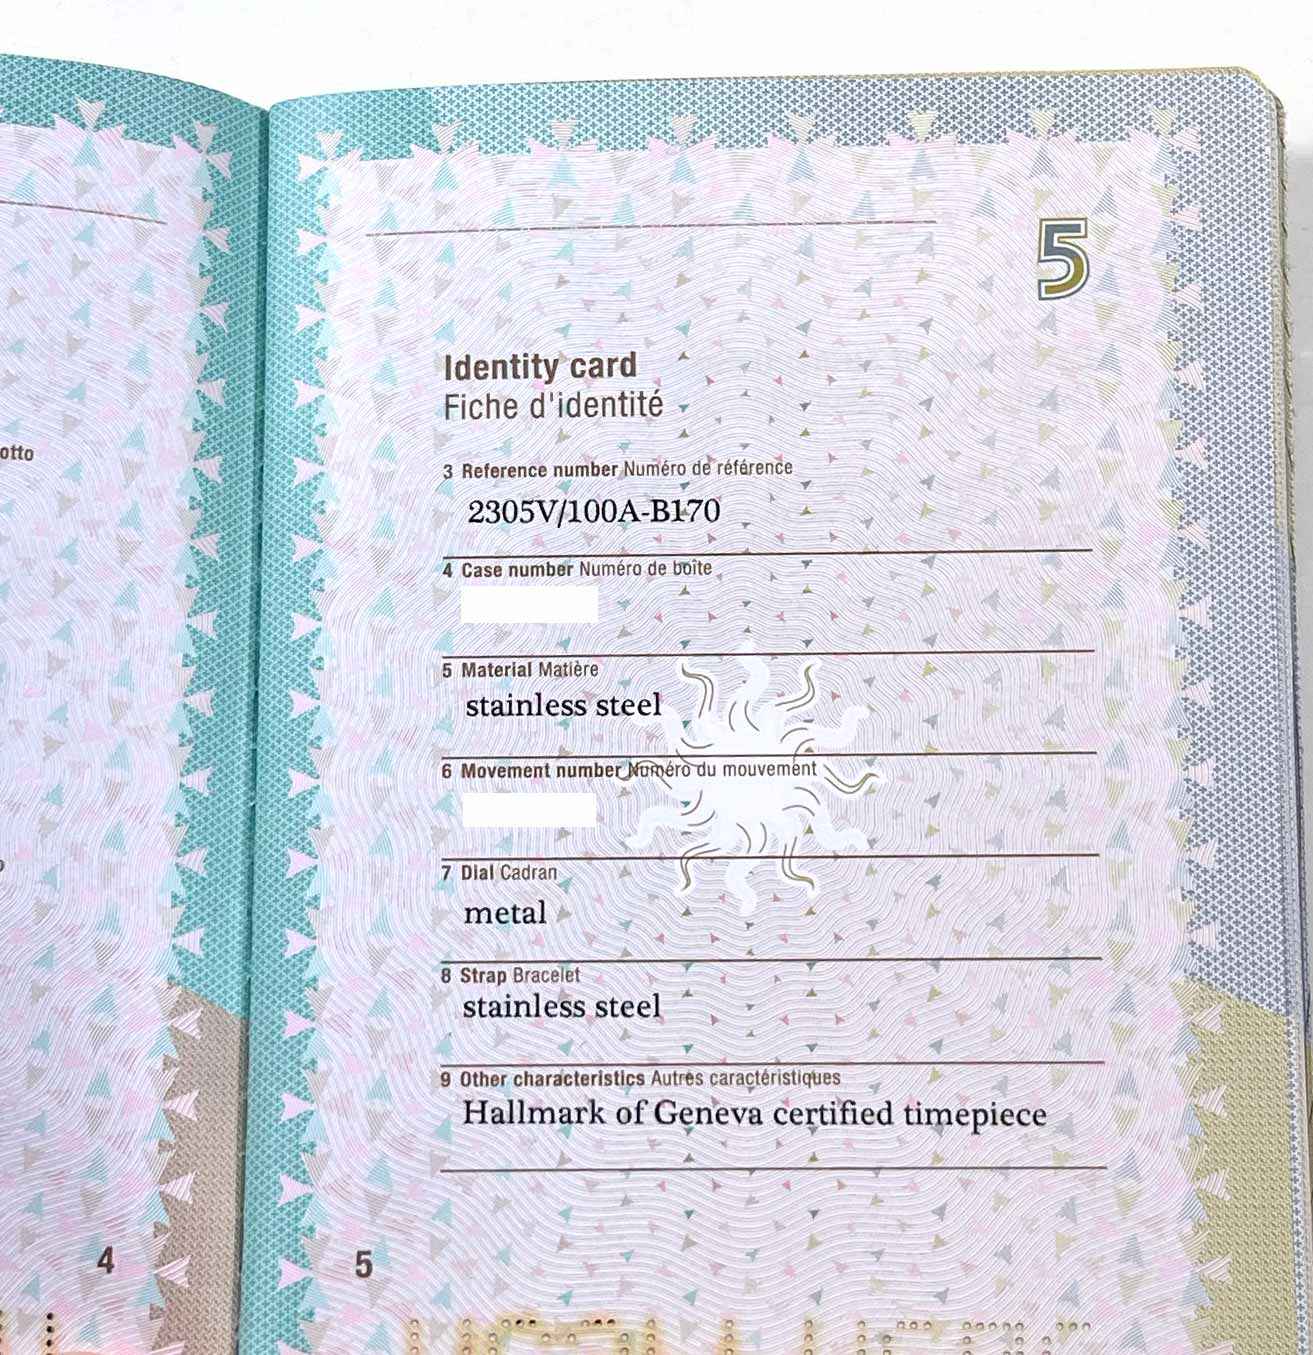 otto
5
Identity card
Fiche d'identité
3 Reference number Numéro de référence
2305V/100A-B170
4 Case number Numéro de boîte
5 Material Matière
stainless steel
6 Movement number Numéro du mouvement
7 Dial Cadran
metal
8 Strap Bracelet
stainless steel
9 Other characteristics Autres caractéristiques
Hallmark of Geneva certified timepiece
4
5